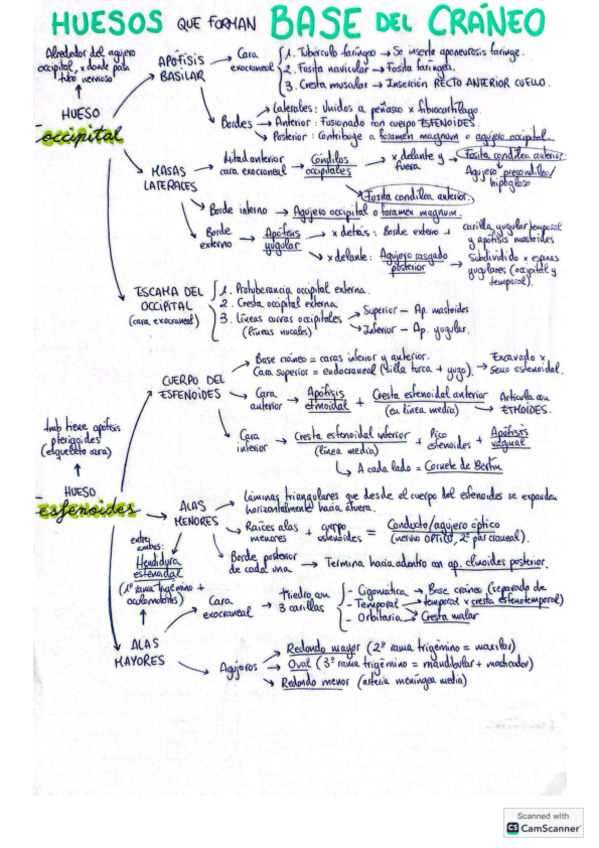 HUESOS QUE FORMAN BASE DEL CRÁNEO
Alrededor del agujero
occipital, x donde pasa
tubo nervioso
HUESO
occipital
APÓFISIS
BASILAR
Cara
exocraneal
1. Tubérculo faríngeo → Se inserte aponeurosis faringe.
2. Fosita navicular → Fosita faríngea.
3. Cresta muscular → Inserción RECTO ANTERIOR CUELLO.
Bordes
Laterales: Unidos a peñasco x fibrocartílago.
Anterior: Fusionado con cuerpo ESFENOIDES.
Posterior: Contribuye a foramen magnum o agujero occipital.
MASAS
LATERALES
Mitad anterior
cara exocraneal → Cóndilos
occipitales → x delante y
fuera → Fosita condílea anterior
Agujero precondíleo/
hipogloso
Fosita condílea anterior.
Borde interno → Agujero occipital o foramen magnum.
Borde
externo → Apófisis
yugular
x detrás: Borde externo + carilla yugular temporal
y apófisis mastoides
x delante: Agujero rasgado
posterior → Subdividido x espinas
yugulares (occipital y
temporal).
ESCAMA DEL
OCCIPITAL
(cara exocraneal)
1. Protuberancia occipital externa.
2. Cresta occipital externa
3. Líneas curvas occipitales
(líneas nucales)
Superior – Ap. mastoides
Inferior – Ap. yugular.
CUERPO DEL
ESFENOIDES
Base cráneo = caras inferior y anterior.
Cara superior = endocraneal (silla turca + yugo). → Excavado x
seno esfenoidal.
Cara
anterior → Apófisis
etmoidal + Cresta esfenoidal anterior
(en línea media) → Articula con
ETMOIDES.
Cara
inferior → Cresta esfenoidal inferior
(línea media) + Pico
esfenoides + Apófisis
vaginal
A cada lado = Cornete de Bertin
tmb tiene apófisis
pterigoides
(esqueleto cara)
HUESO
esfenoides
ALAS
MENORES
Láminas triangulares que desde el cuerpo del esfenoides se expanden
horizontalmente hacia afuera.
Raíces alas
menores + cuerpo
esfenoides = Conducto/agujero óptico
(nervio ÓPTICO, 2º par craneal).
Borde posterior
de cada una → Termina hacia adentro con ap. clinoides posterior.
entre
ambas:
Hendidura
esfenoidal
(1º rama trigémino +
oculomotores)
ALAS
MAYORES
Cara
exocraneal → Triedro con
3 carillas
- Cigomática → Base cráneo (separada de
- Temporal → temporal x cresta esfenotemporal)
- Orbitaria → Cresta malar
Agujeros
Redondo mayor (2º rama trigémino = maxilar)
Oval (3º rama trigémino = mandibular + masticador)
Redondo menor (arteria meníngea media)
Scanned with
CS CamScanner